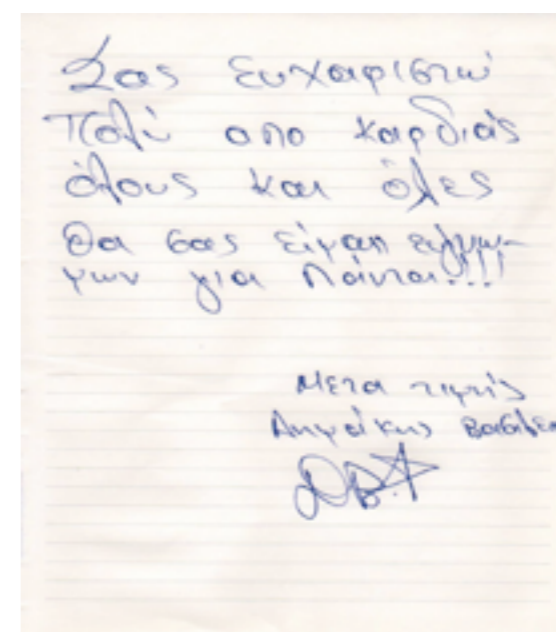 Σας ευχαριστώ
Πολύ απο καρδιάς
όλους και όλες
Θα σας είμαι ευγνω-
μων για Πάντα!!!
Μετα τιμής